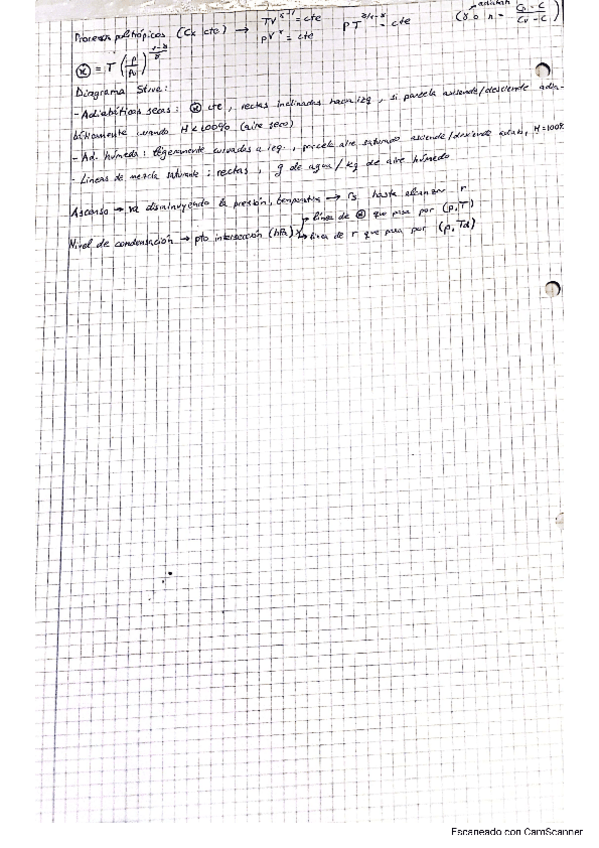 Procesos politrópicos (Cx cte) → Tv^γ-1 = cte   pT^γ/1-γ = cte   (γ o n = Cp - C / Cv - C)
pv^γ = cte
Ⓧ = T (p/p₀)^(1-γ)/γ
Diagrama Stüve:
- Adiabáticas secas: Ⓧ cte, rectas inclinadas hacia izq, si parcela asciende/desciende adia-
báticamente cuando H<100% (aire seco)
- Ad. húmeda: ligeramente curvadas a izq., parcela aire saturado asciende/desciende adiab, H=100%
- Líneas de mezcla saturante: rectas, g de agua/kg de aire húmedo
Ascenso → va disminuyendo la presión, temperatura → rs hasta alcanzar r
Nivel de condensación → pto intersección (hPa) → línea de Ⓧ que pasa por (p,T)
→ línea de r que pasa por (p,Td)
Escaneado con CamScanner